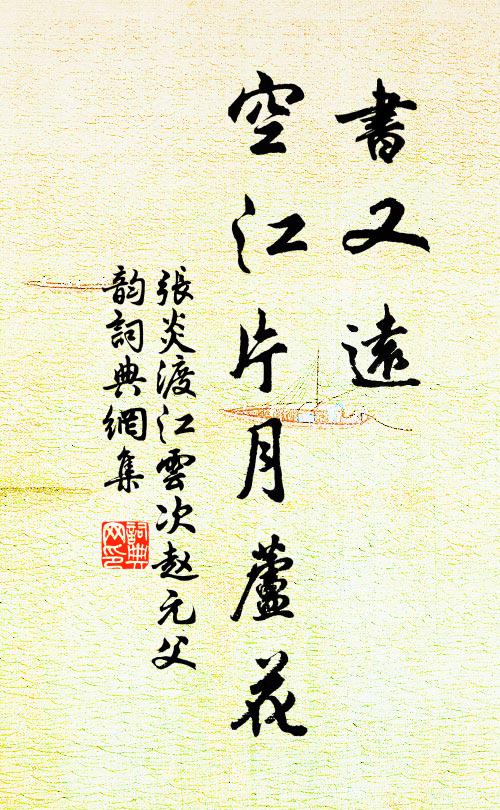 書又遠
空江片月蘆花
張炎渡江雲次赵元父
韵詞典網集
詞典
网印